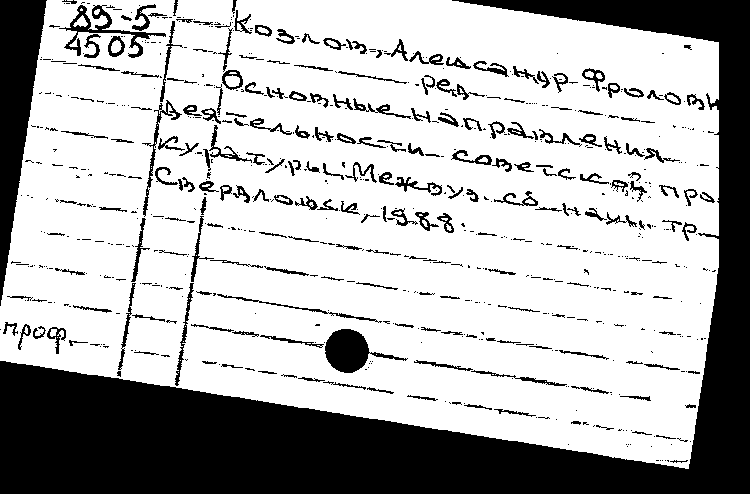 89-5
4505
Козлов, Александр Фролови
ред
Основные направления
деятельности советской про
куратуры: Межвуз. сб. науч. тр.
Свердловск, 1988.
проф.